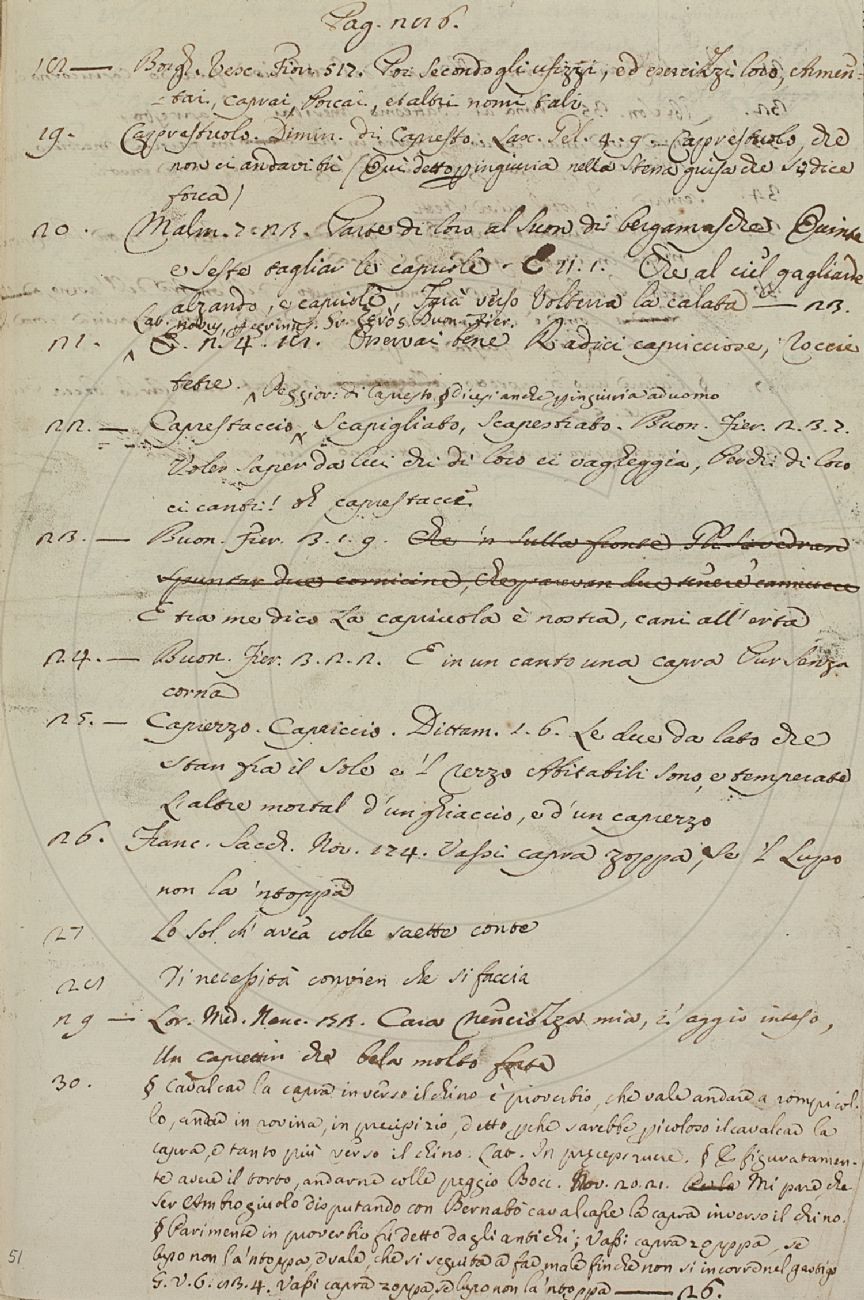 Pag. 226.
18 — Borgh. Vesc. Fior. 517. Poi secondo gli ufizzi, ed esercizzi loro, Armen-
tai, Caprai, Porcai, et altri nomi tali.
19. Caprestuolo. Dimin. di Capresto. Lasc. Gel. 4. 9. Caprestuolo, che
non ci andavi tu (Qui detto p ingiuria nella stessa guisa che si dice
forca)
20. Malm. 7. 23. Parte di loro al suon di bergamasche Quinte
e seste tagliar le capriole. E 11. 1. Che al ciel gagliarde
alzando, e capriole, Iva verso Volterra la calata — 23.
Lat. rubus, Gr. Buon. Fier.
21. 2. 4. 18. Osservai bene Radici capricciose, roccie
tetre.
Peggior. di Capresto, § dicesi anche p ingiuria ad uomo
22. — Caprestaccio, Scapigliato, Scapestrato. Buon. Fier. 2. 3. 7.
Voler saper da lui chi di loro ci vagheggia, Perchè di loro
ci canti! oh caprestacci
23. — Buon. Fier. 3. 1. 9. Che 'n sulla fronte Gli si vedean
spuntar due cornicine, che parevan due tenere
E tra me dico La capriuola è nostra, cani all'erta
24. — Buon. Fier. 3. 2. 2. E in un canto una capra Pur senza
corna
25. — Caprezzo. Capriccio. Dittam. 1. 6. Le due da lato che
stan fra il Sole e 'l rezzo Abitabili sono, e temperate
L'altre mortal d'un ghiaccio, e d'un caprezzo
26. Franc. Sacch. Nov. 174. Vassi capra zoppa, se 'l Lupo
non la 'ntoppa
27 Lo Sol ch' avea colle saette conte
28 Di necessità convien che si faccia
29 — Lor. Med. Nenc. 33. Cara Nenciozza mia, i' aggio inteso,
Un caprettin che bela molto forte
30. § Cavalcar la capra inverso il chino è proverbio, che vale andare a rompicol-
lo, andar in rovina, in precipizio, detto pche sarebbe picoloso il cavalcar la
capra, e tanto più verso il chino. Lat. In preceps ruere. § E figuratamen-
te avere il torto, andarne colle peggio Bocc. Nov. 20. 21. Mi pare, che
Ser Ambrogiuolo disputando con Bernabò cavalcasse la capra inverso il chino.
§ Parimente in proverbio fu detto dagli antichi; Vassi capra zoppa, se
lupo non la 'ntoppa, e vale, che si seguita a far male finche non si incorre nel gastigo
G. V. 6. 83. 4. Vassi capra zoppa, se lupo non la 'ntoppa — 26.
51